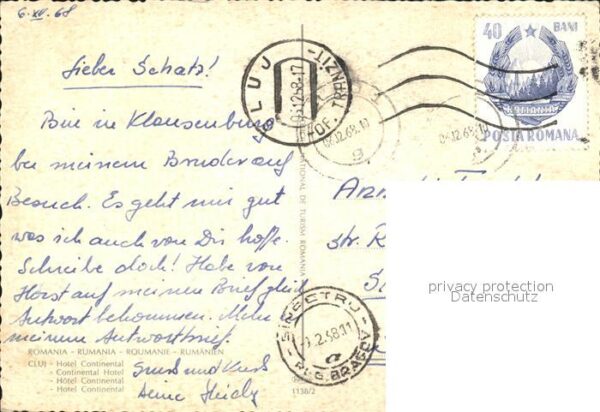 6.XII.68
Lieber Schatz!
Bin in Klausenburg
bei meinem Bruder auf
Besuch. Es geht mir gut
was ich auch von Dir hoffe.
Schreibe doch! Habe von
Horst auf meinen Brief gleich
Antwort bekommen. Mehr in
meinem Antwortbrief.
Gruss und Kuss
Deine
ROMANIA - RUMANIA - ROUMANIE - RUMÄNIEN
CLUJ - Hotel Continental
- Continental Hotel
- Hôtel Continental
- Hotel Continental
1138/2
NATIONAL DE TURISM ROMANIA
CLUJ
40 BANI
ROMANIA
POSTA ROMANA
06.12.68.10
Str.
privacy protection
Datenschutz
REG. BRASOV